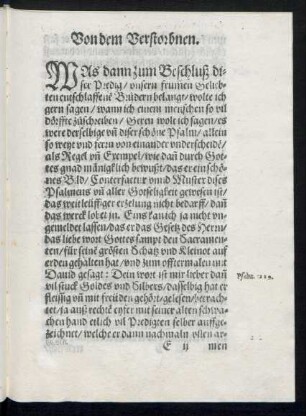 Von dem Verstorbnen.
WAs dann zum Beschluß di-
ser Predig/ unsern frumen Gelieb-
ten entschlaffene Brůdern belangt/ wolte ich
gern sagen/ wann ich einem menschen so vil
dörffte zůschreiben/ Geren wolt ich sagen/ es
were derselbige vñ diser schöne Psalm/ allein
so weyt vnd ferrn von einander vnderscheidē/
als Regel vñ Exempel/ wie dañ durch Got-
tes gnad mänigklich bewust/ das er ein schö-
nes Bild/ Conterfactur vnnd Muster dises
Psalmens vñ aller Gotseligkeit gewesen ist/
das weitleüffiger erzelung nicht bedarff/ dañ
das werck lobet jn. Eins kan ich ja nicht vn-
gemeldet lassen/ das er das Gsetz des Herrn/
das liebe wort Gottes sampt den Sacramen-
ten/ für seine grösten Schatz vnd Kleinot auf
erden gehalten hat/ vnd zum offtermalen mit
Dauid gesagt: Dein wort ist mir lieber dañ
vil stuck Goldes vnd Silbers/ dasselbig hat er
fleissig vñ mit freüden gehört/ gelesen/ betrach-
tet/ ja auß rechte eyfer mit seiner alten schwa-
chen hand etlich vil Predigten selber auffge-
zeichnet/ welche er dann nachmaln vsten ar-
Psalm. 119.
E ij men